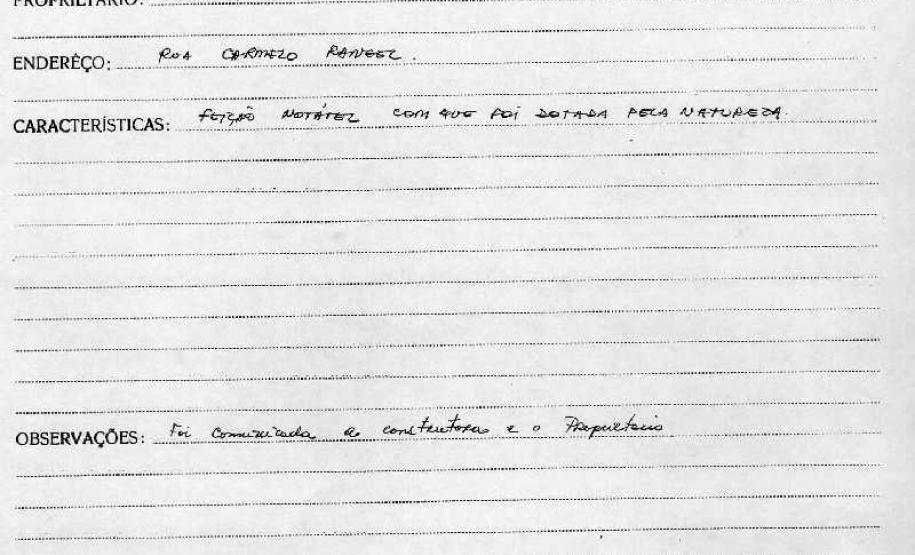 PROPRIETÁRIO:
ENDERÊÇO: RUA CARMELO RANGEL.
CARACTERÍSTICAS: FEIÇÃO NOTÁVEL COM QUE FOI DOTADA PELA NATUREZA.
OBSERVAÇÕES: Foi comunicada a construtora e o Proprietário